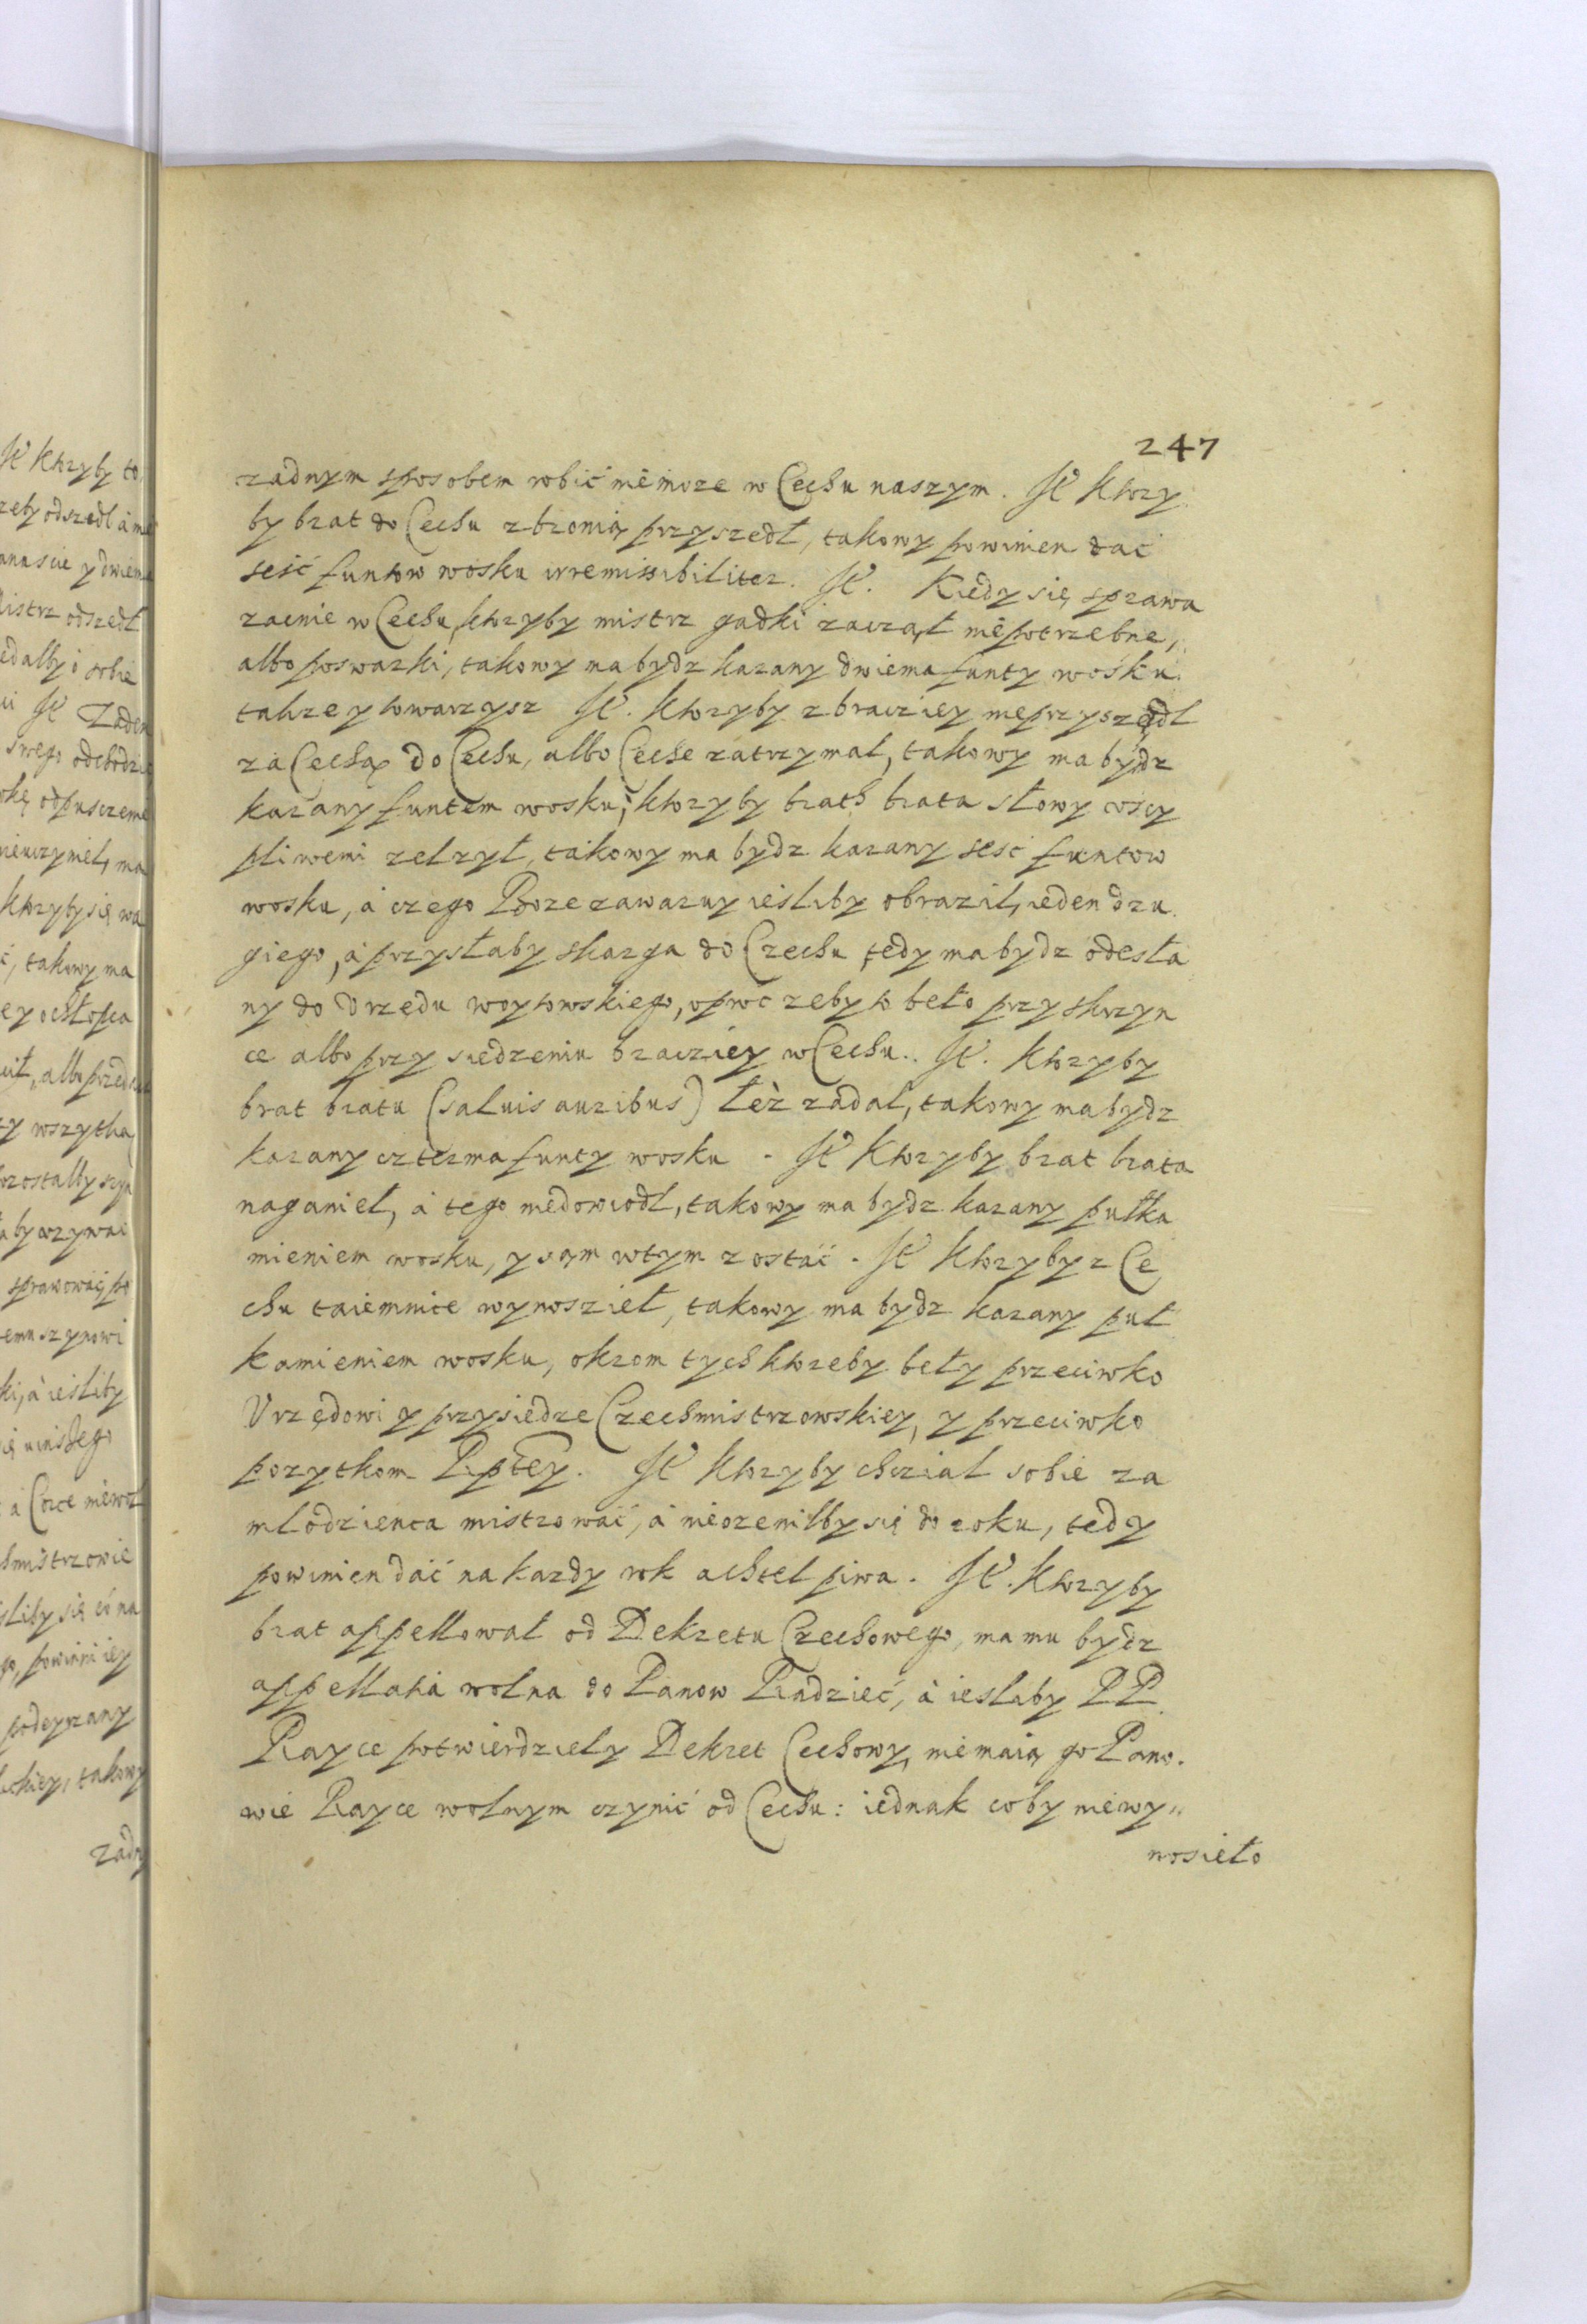 247
zadnym sposobem robić niemoze w Cechu naszym. It Ktory
by brat do Cechu z bronią przyszedł, takowy powinien dać
sesć funtow wosku irremissibiliter. It. Kiedy się sprawa
zacnie w Cechu, ktoryby mistrz gadki zaczął niepotrzebne,
albo poswarki, takowy ma bydz karany dwiema funty wosku.
takze y towarzysz It. Ktoryby z bracziey nieprzyszędł
za Cechą do Cechu, albo Ceche zatrzymał, takowy ma bydz
karany funtem wosku; ktoryby brath brata słowy uscy
pliwemi zelzył, takowy ma bydz karany sesć funtow
wosku, á czego Boze zawaruy iesliby obraził, ieden dru
giego, á przyszłaby skarga do Czechu tedy ma bydz odesła
ny do Vrzędu woytowskiego, oprocz zeby to beło przy skrzyn
ce albo przy siedzeniu bracziey w Cechu.. It. Ktoryby
brat bratu (saluis auribus) łeż zadał, takowy ma bydz
karany czterma funty wosku. It Ktoryby brat brata
naganieł, á tego niedowiodł, takowy ma bydz karany pułka
mieniem wosku, y sąm wtym zostać. It Ktoryby z Ce
chu taiemnice wynoszieł, takowy ma bydz karany puł
kamieniem wosku, okrom tych ktoreby beły przeciwko
Vrzędowi y przysiedze Czechmistrzowskiey, y przeciwko
pozytkom Rptey. It Ktoryby chcział sobie za
młodzienca mistrować, á nieozeniłby się do roku, tedy
powinien dać na kazdy rok achtel piwa. It. Ktoryby
brat appellował od Dekretu Czechowego, ma mu bydz
appellatia wolna do Panow Radzieć, á ieslaby PP.
Rayce potwierdziely Dekret Cechowy, niemaią go Pano.
wie Rayce wolnym czynić od Cechu: iednak coby niewy„
nosieło
It Ktoryby to
istrz odszedł
It Zaden
swego odchodzi
takowy ma
sprawować, po
takowy
zadn